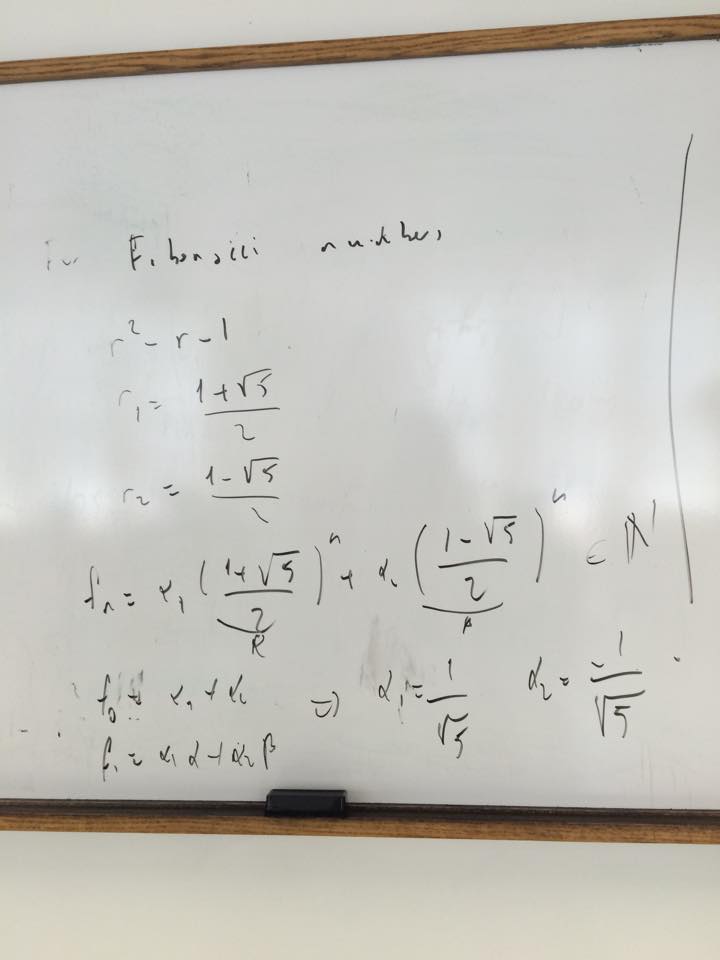 For Fibonacci numbers
r² - r - 1
r₁ = (1+√5)/2
r₂ = (1-√5)/2
fₙ = α₁ ((1+√5)/2)ⁿ + α₂ ((1-√5)/2)ⁿ ∈ ℕ
α β
f₀ = α₁ + α₂ ⇒ α₁ = 1/√5 α₂ = -1/√5
f₁ = α₁ α + α₂ β